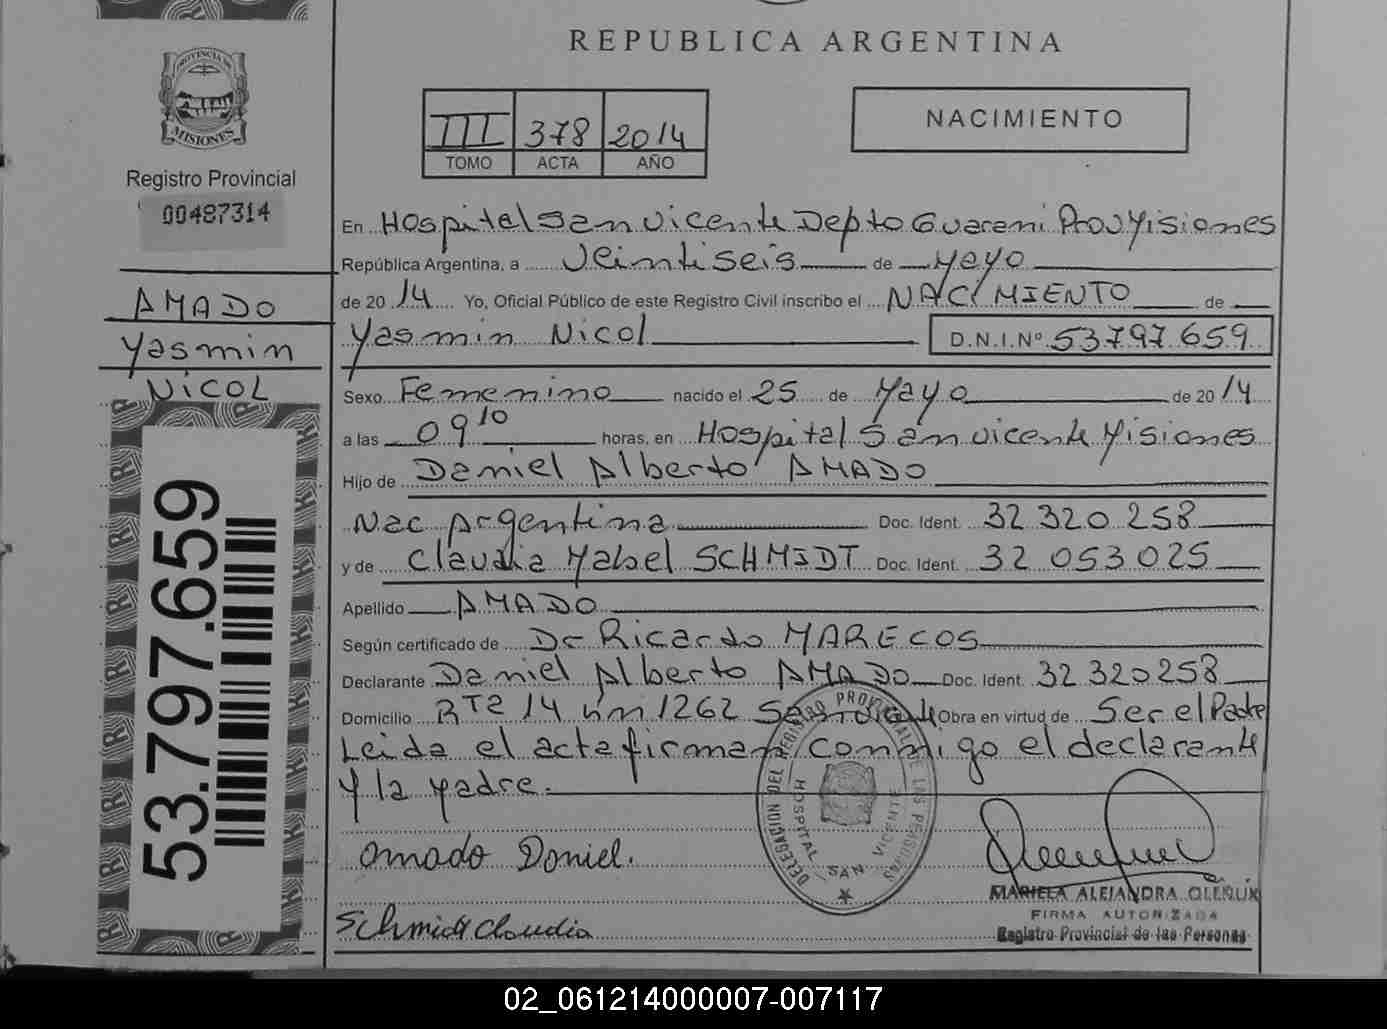 REPUBLICA ARGENTINA
PROVINCIA DE
MISIONES
Registro Provincial
00487314
III 378 2014
TOMO ACTA AÑO
NACIMIENTO
AMADO
Yasmin
Nicol
53.797.659
En Hospital San Vicente Depto Guarani Prov Misiones
República Argentina, a Veintiseis de Mayo
de 20 14 Yo, Oficial Público de este Registro Civil inscribo el NACIMIENTO de
Yasmin Nicol D.N.I.Nº 53797659
Sexo Femenino nacido el 25 de Mayo de 20 14
a las 09 10 horas, en Hospital San vicente Misiones
Hijo de Daniel Alberto AMADO
Nac Argentina Doc. Ident. 32 320 258
y de Claudia Mabel SCHMIDT Doc. Ident. 32 053 025
Apellido AMADO
Según certificado de Dr Ricardo MARECOS
Declarante Daniel Alberto AMADO Doc. Ident. 32 320258
Domicilio RTa 14 km 1262 Obra en virtud de Ser el Padre
Leida el acta firman conmigo el declarante
y la Madre.
DELEGACION DEL REGISTRO PROVINCIAL DE LAS PERSONAS
HOSPITAL SAN VICENTE
Amado Daniel.
Schmidt Claudia
MARIELA ALEJANDRA OLEÑUK
FIRMA AUTORIZADA
Registro Provincial de las Personas
02_061214000007-007117